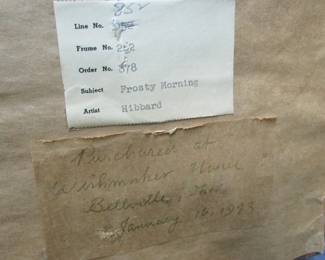 852
Line No.
Frame No. 252
Order No. 878
Subject Frosty Morning
Artist Hibbard
Purchased at
Bellville,
January 16, 1993